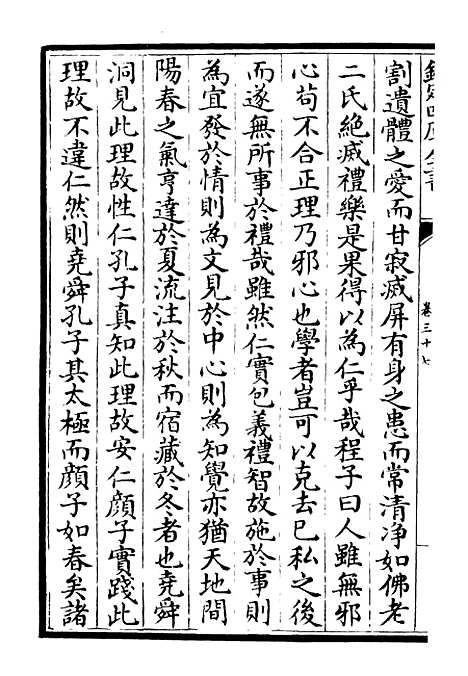 欽定四庫全書
卷三十七
割遺體之愛而甘寂滅屏有身之患而常清净如佛老
二氏絶滅禮樂是果得以為仁乎哉程子曰人雖無邪
心苟不合正理乃邪心也學者豈可以克去已私之後
而遂無所事於禮哉雖然仁實包義禮智故施於事則
為宜發於情則為文見於中心則為知覺亦猶天地間
陽春之氣亨達於夏流注於秋而宿藏於冬者也堯舜
洞見此理故性仁孔子真知此理故安仁顔子實踐此
理故不違仁然則堯舜孔子其太極而顔子如春矣諸